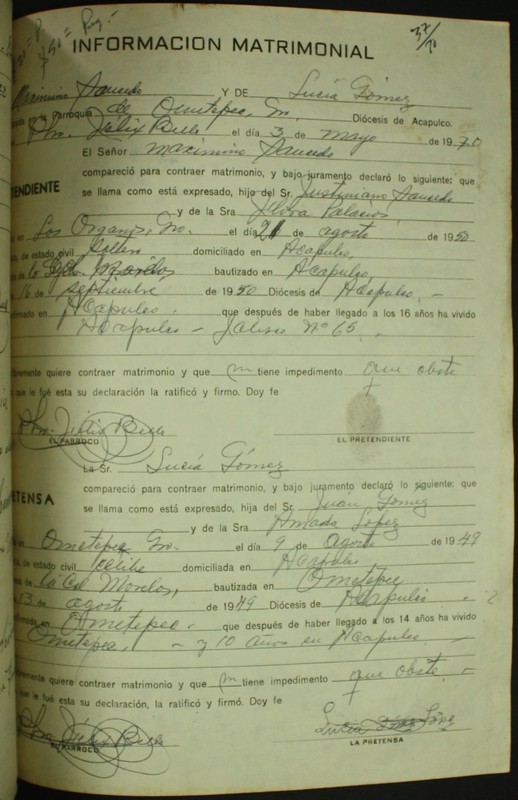 37/70
INFORMACION MATRIMONIAL
Maximino Saucedo Y DE Lucía Gómez
en la Parroquia de Ometepec, Gro. Diócesis de Acapulco.
Pbro. Félix el día 3 de mayo de 1970
El Señor Maximino Saucedo
compareció para contraer matrimonio, y bajo juramento Declaró lo siguiente: que
TENDIENTE
se llama como está expresado, hijo del Sr. Justiniano Saucedo
y de la Sra Flora Palacios
en Los Organos, Gro. el día 21 de agosto de 1950
de estado civil célibe domiciliado en Acapulco,
Morelos bautizado en Acapulco,
16 septiembre de 1950 Diócesis de Acapulco. -
en Acapulco. que después de haber llegado a los 16 años ha vivido
Acapulco - Jalisco Nº 65.
quiere contraer matrimonio y que no tiene impedimento que obste
que le fué esta su declaración la ratificó y firmo. Doy fe
Pbro. Félix
EL PARROCO
EL PRETENDIENTE
La Sr. Lucía Gómez
compareció para contraer matrimonio, y bajo juramento declaró lo siguiente: que
ETENSA
se llama como está expresado, hija del Sr. Juan Gómez
y de la Sra Amada López
en Ometepec Gro. el día 9 de agosto de 1949
de estado civil célibe domiciliada en Acapulco
la Col Morelos, bautizada en Ometepec
13 de agosto de 1949 Diócesis de Acapulco -
en Ometepec. que después de haber llegado a los 14 años ha vivido
Ometepec, - y 10 años en Acapulco. -
quiere contraer matrimonio y que no tiene impedimento que obste. -
que le fué esta su declaración, la ratificó y firmó. Doy fe
Félix
EL PARROCO
Lucía
LA PRETENSA